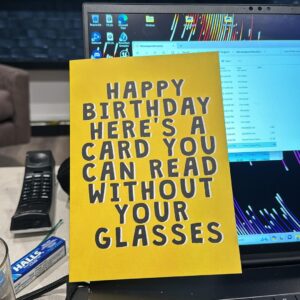 HAPPY
BIRTHDAY
HERE'S A
CARD YOU
CAN READ
WITHOUT
YOUR
GLASSES
HALLS